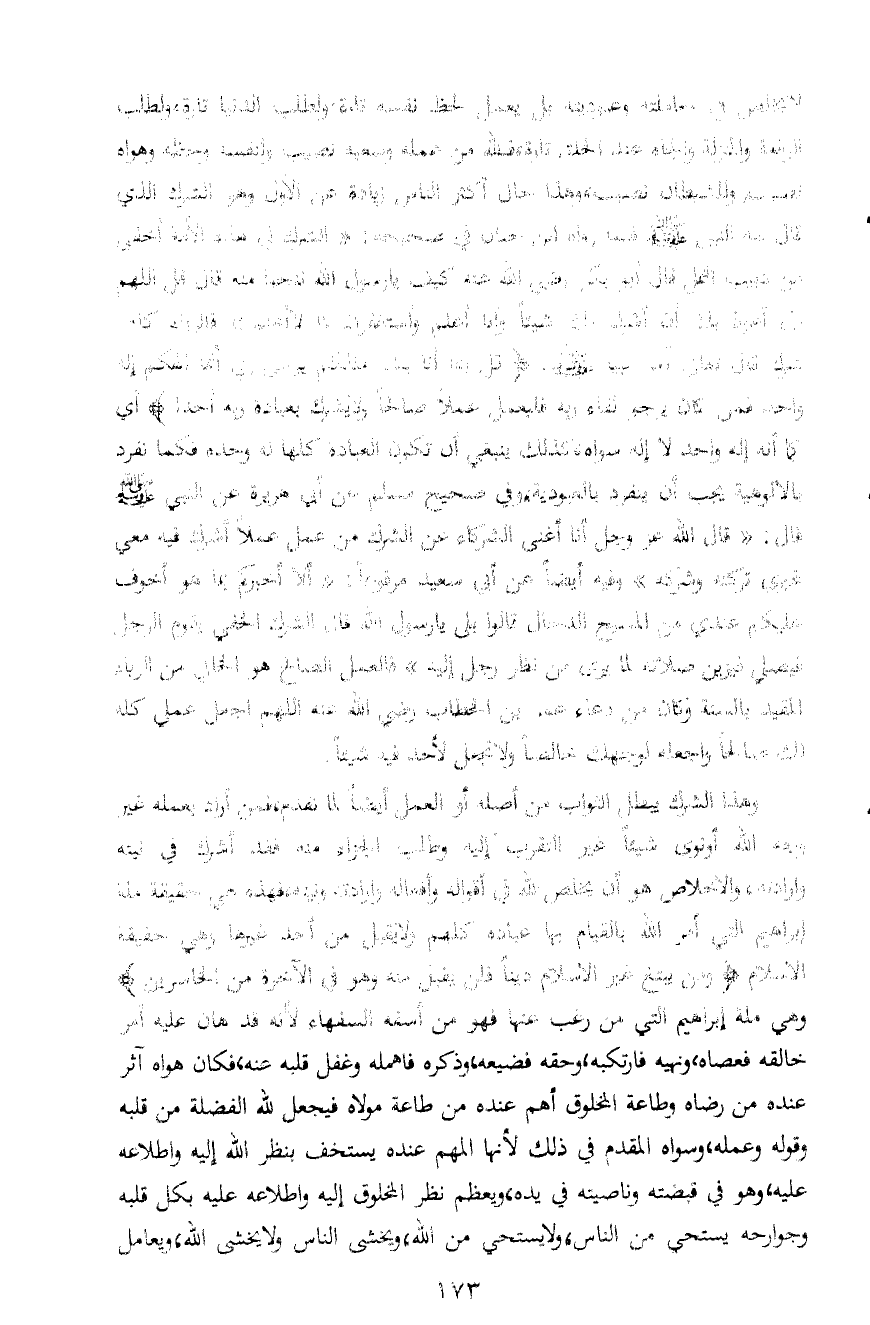 لايخلص في معاملته وعبوديته بل يعمل لحظ نفسه تارة،ولطلب الدنيا تارة،ولطلب
الرفعة والمنزلة والجاه عند الخلق تارة،فلله من عمله وسعيه نصيب ولنفسه وحظه وهواه
نصيب وللشيطان نصيب،وهذا حال أكثر الناس زيادة عن الأول وهو الشرك الذي
قال فيه النبي ﷺ فيما رواه ابن حبان في صحيحه: « الشرك في هذه الأمة أخفى
من دبيب النمل قال أبو بكر رضي الله عنه كيف يارسول الله ننجوا منه قال قل اللهم
إني أعوذ بك أن أشرك بك شيئاً وأنا أعلم وأستغفرك لما لاأعلم » فالرياء كله
شرك قال تعالى ﴿ قل إنما أنا بشر مثلكم يوحى إلي أنما الهكم إله
واحد فمن كان يرجو لقاء ربه فليعمل عملاً صالحاً ولايشرك بعبادة ربه أحدا ﴾ أي
كما أنه إله واحد لا إله سواه،فكذلك ينبغي أن تكون العبادة كلها له وحده فكما تفرد
بالألوهية يجب أن ينفرد بالعبودية،وفي صحيح مسلم من أبي هريرة عن النبي ﷺ
قال: « قال الله عز وجل أنا أغنى الشركاء عن الشرك من عمل عملاً أشرك فيه معي
غيري تركته وشركه » وفيه أيضاً عن أبي سعيد مرفوعاً: « ألا أخبركم بما هو أخوف
عليكم عندي من المسيح الدجال قالوا بلى يارسول الله قال الشرك الخفي يقوم الرجل
فيصلي فيزين صلاته لما يرى من نظر رجل إليه » فالعمل الصالح هو الخالي من الرياء
المقيد بالسنة وكان من دعاء عمر بن الخطاب رضي الله عنه اللهم اجعل عملي كله
لك صالحاً واجعله لوجهك خالصاً ولاتجعل لأحد فيه شيئاً.
وهذا الشرك يبطل الثواب من أصله أو العمل أيضاً لما تقدم،فمن أراد بعمله غير
وجه الله أونوى شيئاً غير التقرب إليه وطلب الجزاء منه فقد أشرك في نيته
وارادته، والاخلاص هو أن يخلص لله في أقواله وأفعاله وارادته ونيته،فهذه هي حقيقة ملة
إبراهيم التي أمر الله بالقيام بها عباده كلهم ولايقبل من أحد غيرها وهي حقيقة
الاسلام ﴿ ومن يبتغ غير الاسلام ديناً فلن يقبل منه وهو في الآخرة من الخاسرين ﴾
وهي ملة إبراهيم التي من رغب عنها فهو من أسفه السفهاء لأنه قد هان عليه أمر
خالقه فعصاه،ونهيه فارتكبه،وحقه فضيعه،وذكره فاهمله وغفل قلبه عنه،فكان هواه آثر
عنده من رضاه وطاعة المخلوق أهم عنده من طاعة مولاه فيجعل لله الفضلة من قلبه
وقوله وعمله،وسواه المقدم في ذلك لأنها المهم عنده يستخف بنظر الله إليه واطلاعه
عليه،وهو في قبضته وناصيته في يده،ويعظم نظر المخلوق إليه واطلاعه عليه بكل قلبه
وجوارحه يستحي من الناس،ولايستحي من الله،ويخشى الناس ولايخشى الله،ويعامل
١٧٣